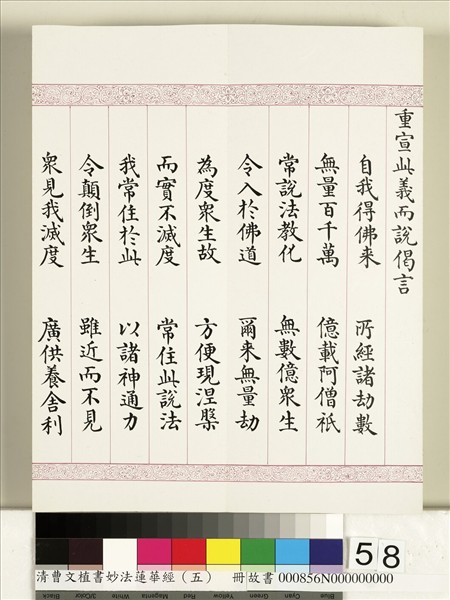 重宣此義而說偈言
自我得佛來 所經諸劫數
無量百千萬 億載阿僧祇
常說法教化 無數億眾生
令入於佛道 爾來無量劫
為度眾生故 方便現涅槃
而實不滅度 常住此說法
我常住於此 以諸神通力
令顛倒眾生 雖近而不見
眾見我滅度 廣供養舍利
58
清曹文植書妙法蓮華經（五） 冊故書 000856N000000000
Black 3/Color White Magenta Red Yellow Green Cyan Blue